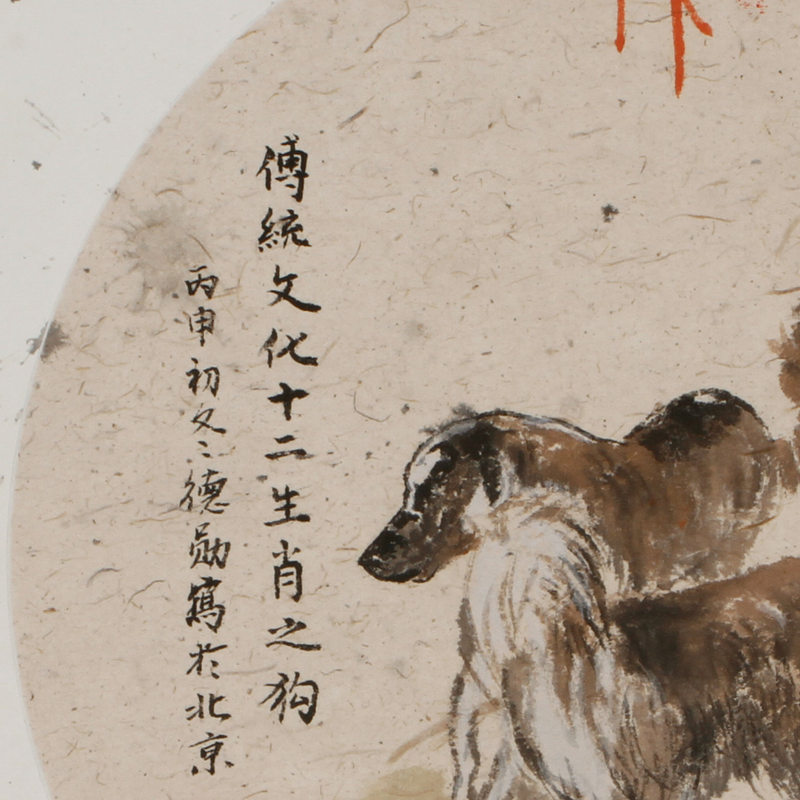 傳統文化十二生肖之狗
丙申初冬德勛寫於北京